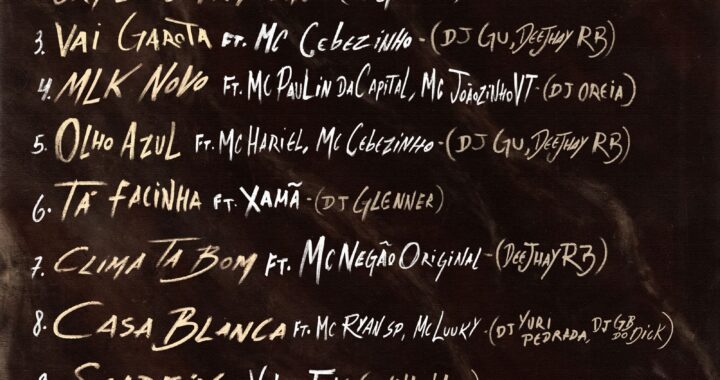 3. VAI GAROTA FT. MC CEBEZINHO - (DJ GU, DEEJHAY RB)
4. MLK NOVO FT. MC PAULIN DA CAPITAL, MC JOÃOZINHO VT - (DJ OREIA)
5. OLHO AZUL FT. MC HARIEL, MC CEBEZINHO - (DJ GU, DEEJHAY RB)
6. TÁ FACINHA FT. XAMÃ - (DJ GLENNER)
7. CLIMA TA BOM FT. MC NEGÃO ORIGINAL - (DEEJHAY RB)
8. CASA BLANCA FT. MC RYAN SP, MC LUUKY - (DJ YURI PEDRADA, DJ GB DO DICK)